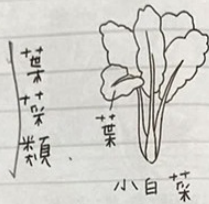 葉菜類
葉
小白菜